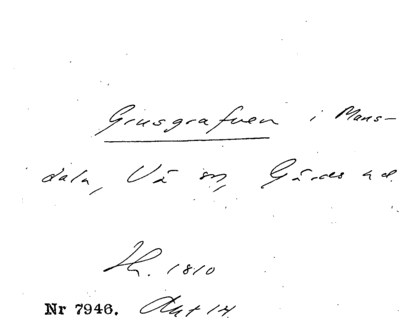 Grusgrafven i Mans-
dala, Vä sn, Gärds hd.
Th. 1810
Nr 7946. Akt 14.